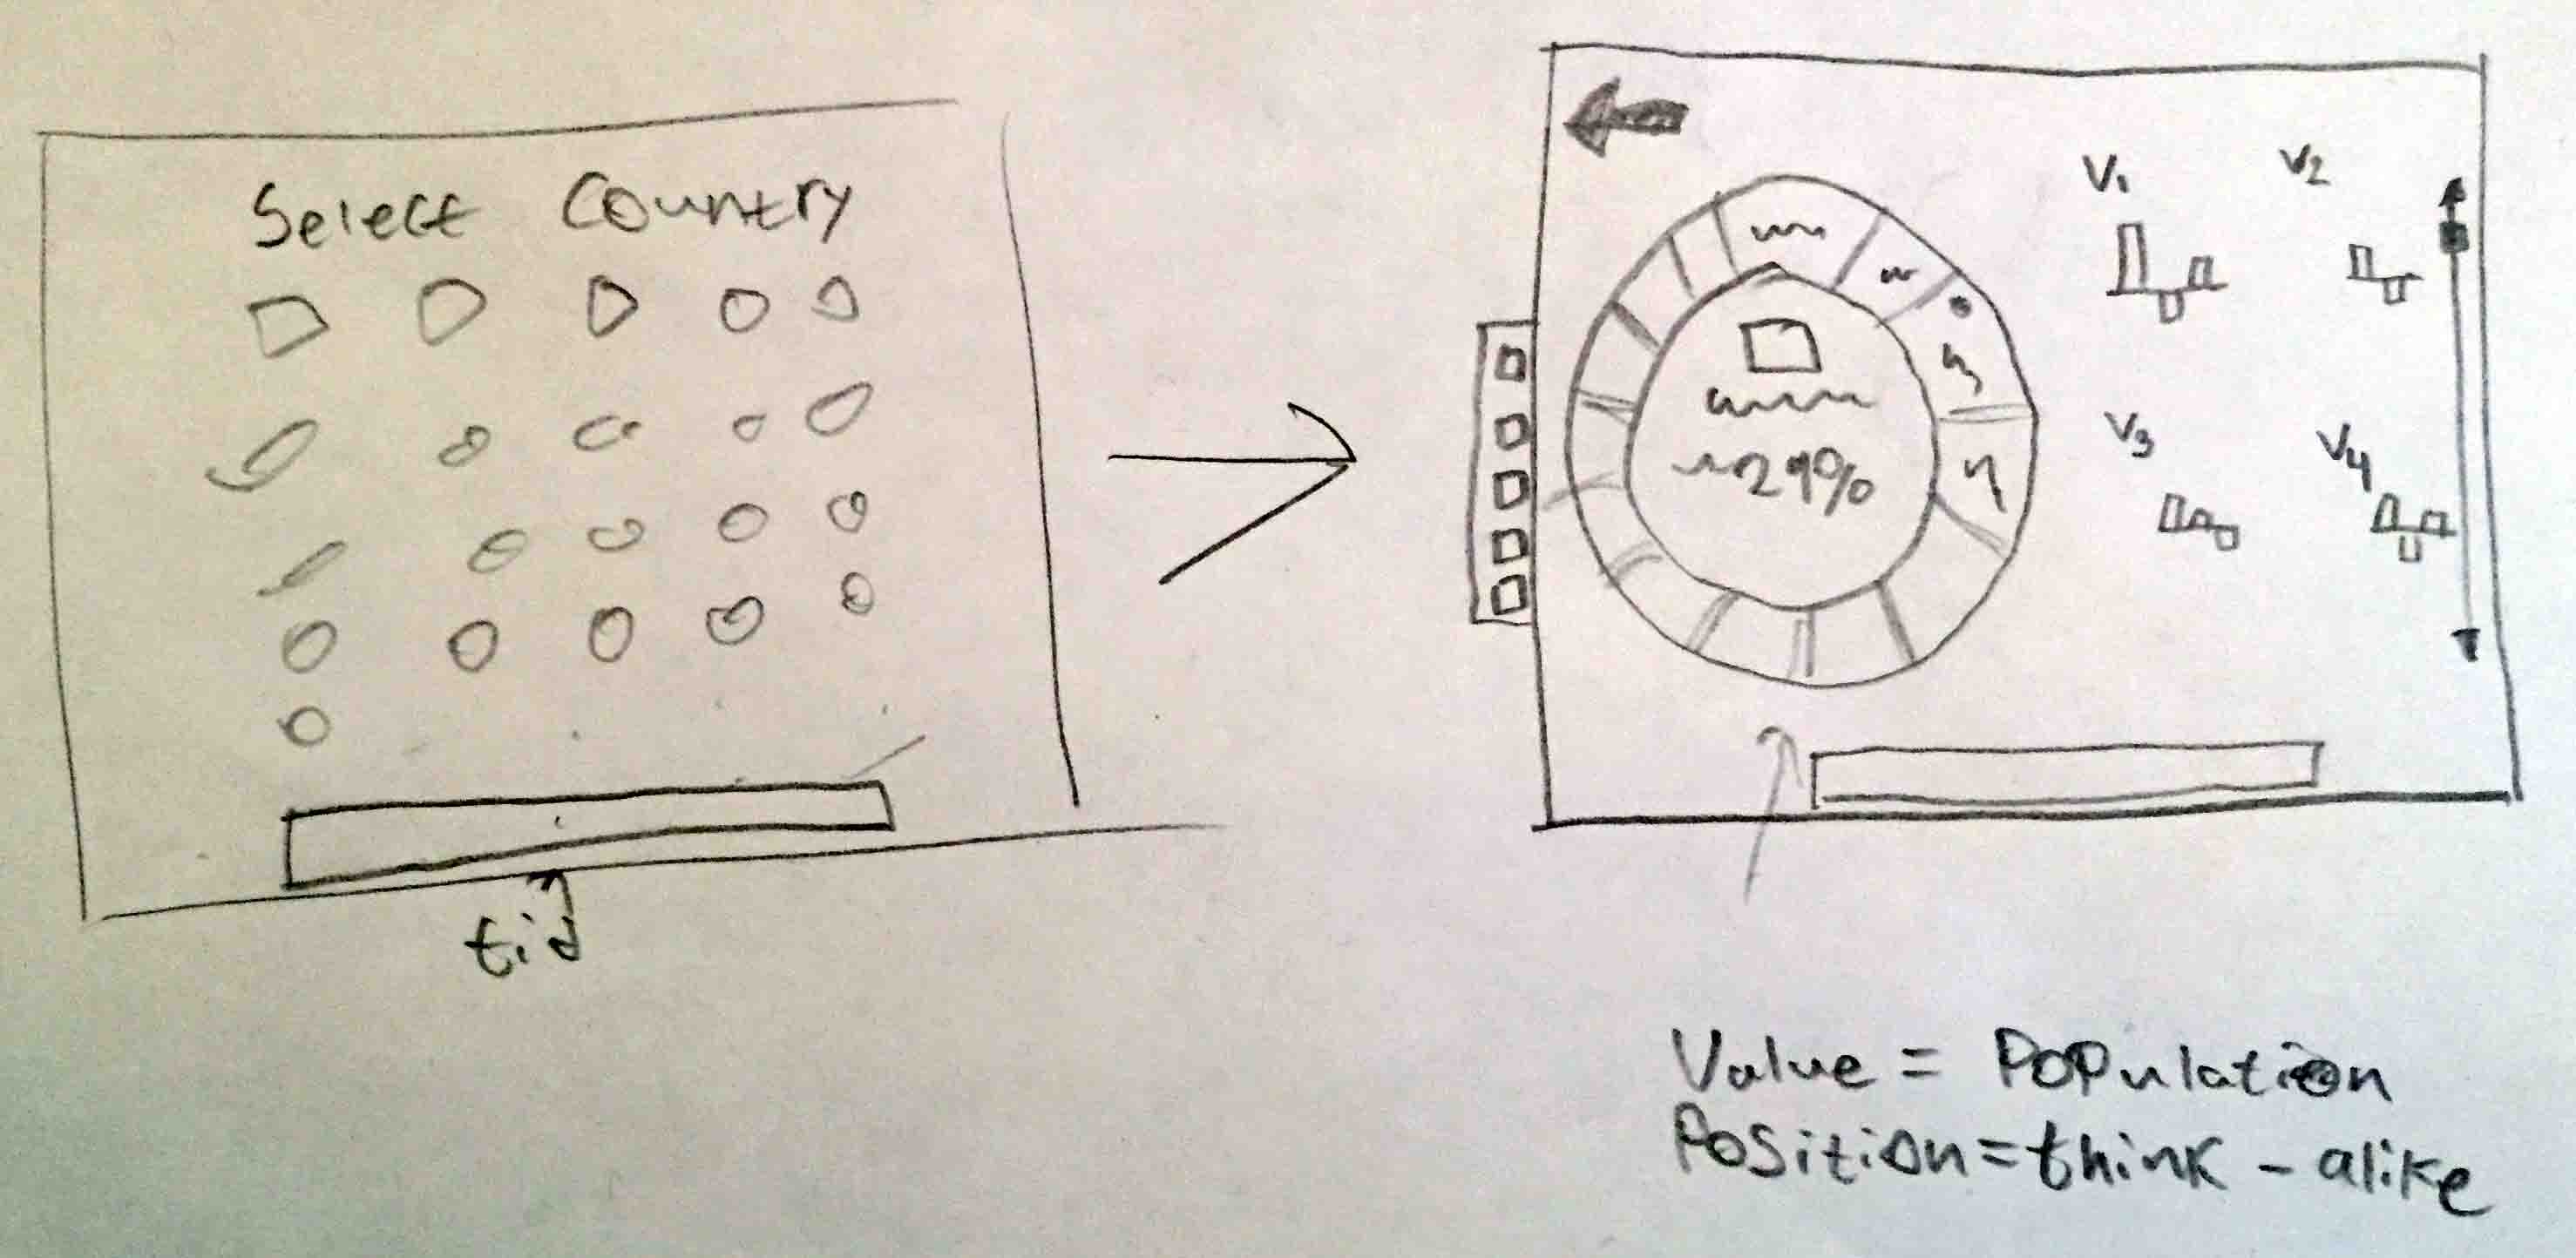 Select Country
tid
V1
V2
29%
V3
V4
Value = Population
Position = think - alike